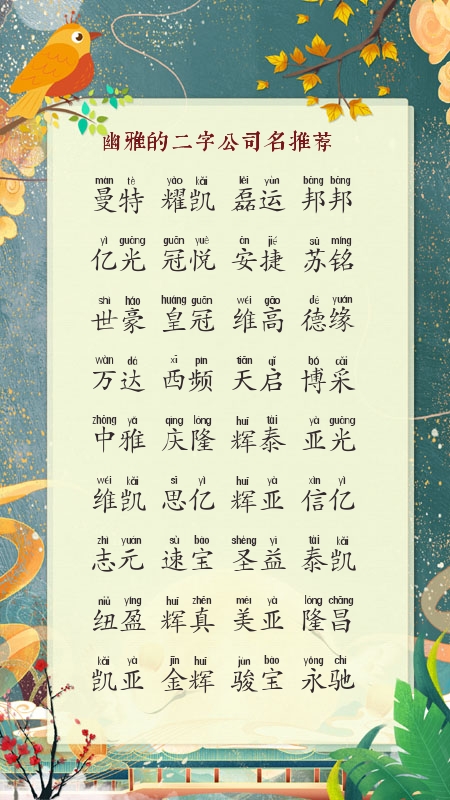 幽雅的二字公司名推荐
màn tè yào kǎi lěi yùn bāng bāng
曼特 耀凯 磊运 邦邦
yì guāng guān yuè ān jié sū míng
亿光 冠悦 安捷 苏铭
shì háo huáng guān wéi gāo dé yuán
世豪 皇冠 维高 德缘
wàn dá xī pín tiān qǐ bó cǎi
万达 西频 天启 博采
zhōng yǎ qìng lóng huī tài yà guāng
中雅 庆隆 辉泰 亚光
wéi kǎi sī yì huī yà xìn yì
维凯 思亿 辉亚 信亿
zhì yuán sù bǎo shèng yì tài kǎi
志元 速宝 圣益 泰凯
niǔ yíng huī zhēn měi yà lóng chāng
纽盈 辉真 美亚 隆昌
kǎi yà jīn huī jùn bǎo yǒng chí
凯亚 金辉 骏宝 永驰